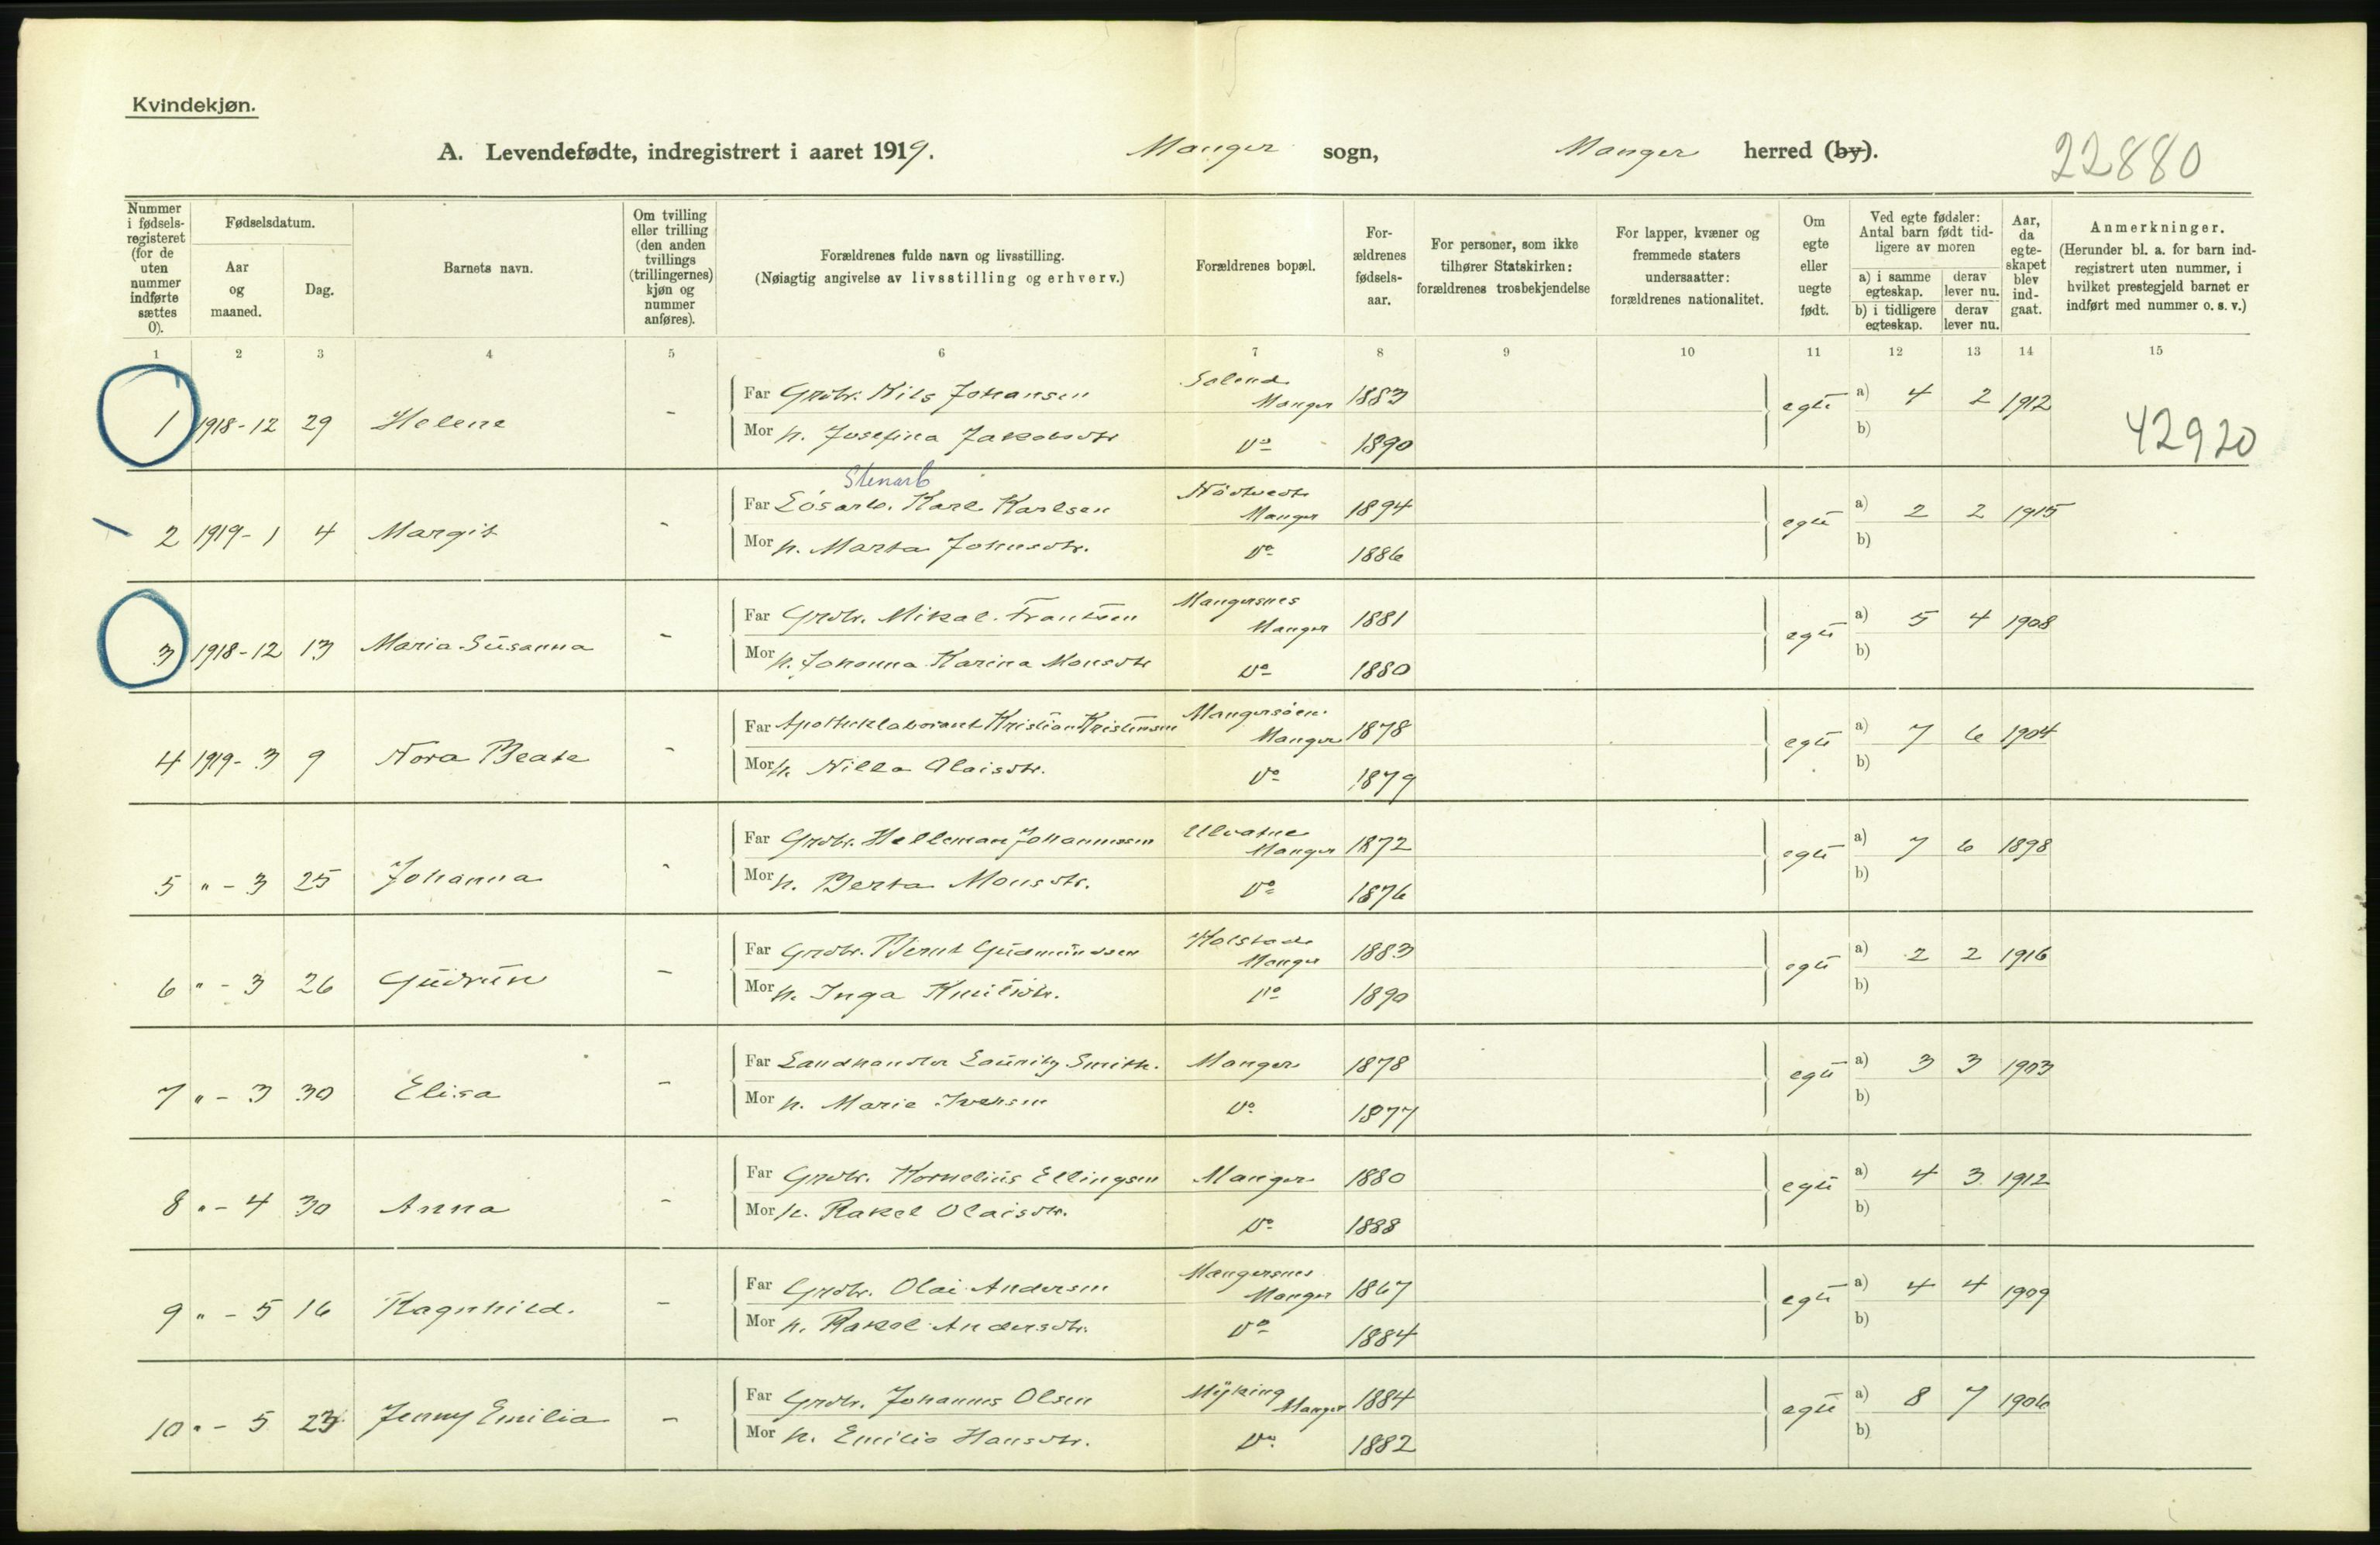 Kvindekjøn.
A. Levendefødte, indregistrert i aaret 1919. Manger sogn, Manger herred (by). 22880
Nummer i fødsels-registeret (for de uten nummer indførte sættes 0).
Fødselsdatum.
Aar og maaned.
Dag.
Barnets navn.
Om tvilling eller trilling (den anden tvillings (trillingernes) kjøn og nummer anføres).
Forældrenes fulde navn og livsstilling.
(Nøiagtig angivelse av livsstilling og erhverv.)
Forældrenes bopæl.
For-ældrenes fødsels-aar.
For personer, som ikke tilhører Statskirken: forældrenes trosbekjendelse
For lapper, kvæner og fremmede staters undersaatter: forældrenes nationalitet.
Om egte eller uegte født.
Ved egte fødsler: Antal barn født tid-ligere av moren
a) i samme egteskap. derav lever nu.
b) i tidligere egteskap. derav lever nu.
Aar, da egte-skapet blev ind-gaat.
Anmerkninger.
(Herunder bl. a. for barn ind-registrert uten nummer, i hvilket prestegjeld barnet er indført med nummer o. s. v.)
1 2 3 4 5 6 7 8 9 10 11 12 13 14 15
Far Grdbr. Nils Johansen Solend Manger 1883 egte a) 4 2 1912
1 1918-12 29 Helene -
Mor h. Josefina Jakobsdtr Do 1890 b) 42920
Stenarb
Far Løsarb. Karl Karlsen Nödtvedt Manger 1894 egte a) 2 2 1915
2 1919-1 4 Margit -
Mor h. Marta Johnsdtr. Do 1886 b)
Far Grdbr. Mikal Frantsen Mangersnes Manger 1881 egte a) 5 4 1908
3 1918-12 13 Maria Susanna -
Mor h. Johanna Karina Monsdtr Do 1880 b)
Far Apotheklaborant Kristian Kristensen Mangersöen Manger 1878 egte a) 7 6 1904
4 1919-3 9 Nora Beate -
Mor h. Nilla Olaisdtr. Do 1879 b)
Far Grdbr. Helleman Johannessen Ulvatne Manger 1872 egte a) 7 6 1898
5 " - 3 25 Johanna -
Mor h. Berta Monsdtr. Do 1876 b)
Far Grdbr. Bernt Gudmundsen Holstad Manger 1883 egte a) 2 2 1916
6 " - 3 26 Gudrun -
Mor h. Inga Knutsdtr. Do 1890 b)
Far Landhandler Lauritz Smith. Manger 1878 egte a) 3 3 1903
7 " - 3 30 Elisa -
Mor h. Marie Iversen Do 1877 b)
Far Grdbr. Kornelius Ellingsen Manger 1880 egte a) 4 3 1912
8 " - 4 30 Anna -
Mor h. Rakel Olaisdtr. Do 1888 b)
Far Grdbr. Olai Andersen Mangersnes Manger 1867 egte a) 4 4 1909
9 " - 5 16 Ragnhild. -
Mor h. Rakel Andersdtr. Do 1884 b)
Far Grdbr. Johannes Olsen Myking Manger 1884 egte a) 8 7 1906
10 " - 5 23 Jenny Emilia -
Mor h. Emilia Hansdtr. Do 1882 b)